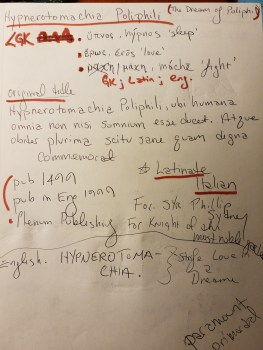 Hypnerotomachia Poliphili (The Dreams of Poliphili)
<GK • ὕπνος, hýpnos 'sleep'
• ἔρως, érōs 'love'
• μάχη, máchē 'fight'
GK; Latin; eng.
Original title
Hypnerotomachia Poliphili, ubi humana
omnia non nisi somnium esse docet. Atque
obiter plurima scitu sane quam digna
Commemorat
pub 1499
pub in Eng 1999
• Plenum Publishing
Latinate
Italian
For Sir Phillip
Sydney
For Knight of
most noble
English. HYPNEROTOMA-
CHIA.
Strife Love
Dreame
paramount
primordial